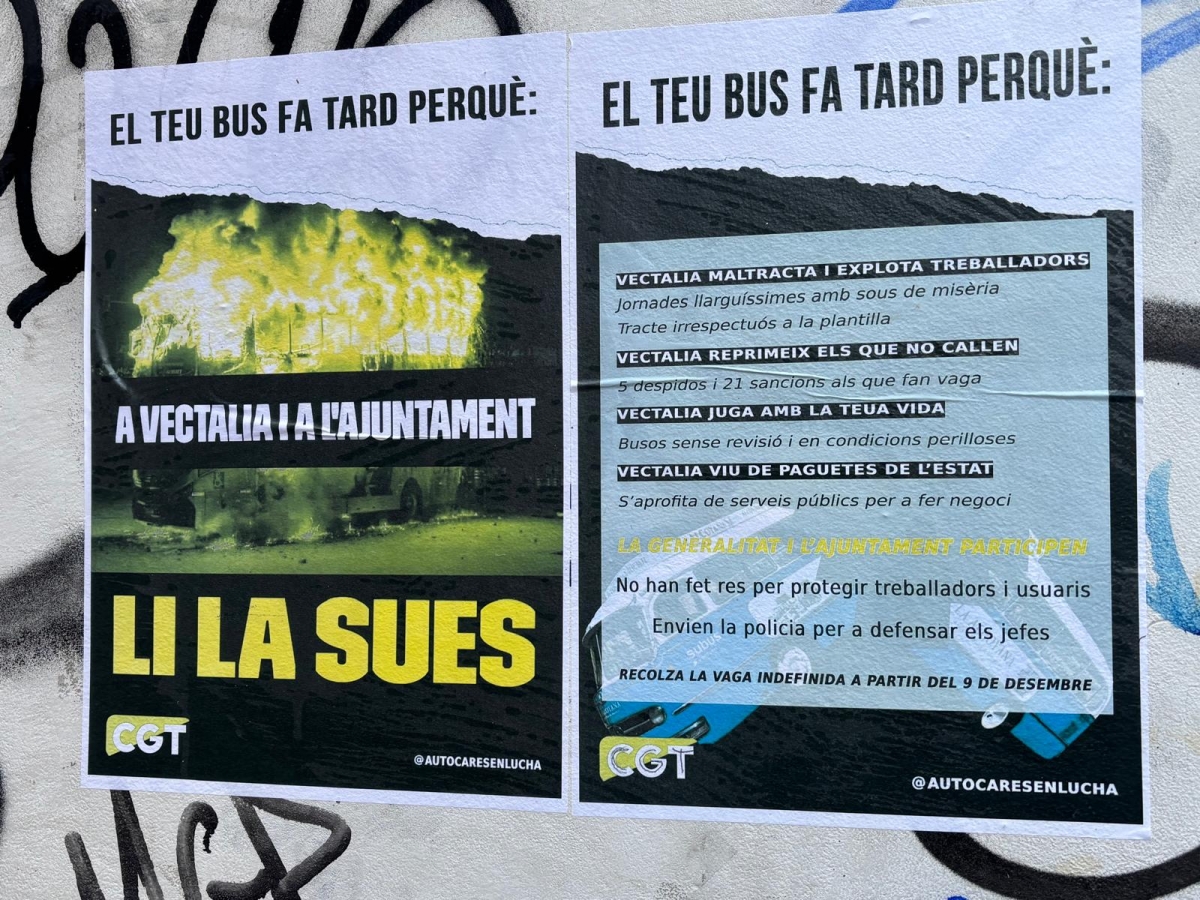 EL TEU BUS FA TARD PERQUÈ:
A VECTALIA I A L'AJUNTAMENT
LI LA SUES
CGT
@AUTOCARESENLUCHA
EL TEU BUS FA TARD PERQUÈ:
VECTALIA MALTRACTA I EXPLOTA TREBALLADORS
Jornades llarguíssimes amb sous de misèria
Tracte irrespectuós a la plantilla
VECTALIA REPRIMEIX ELS QUE NO CALLEN
5 despidos i 21 sancions als que fan vaga
VECTALIA JUGA AMB LA TEUA VIDA
Busos sense revisió i en condicions perilloses
VECTALIA VIU DE PAGUETES DE L'ESTAT
S'aprofita de serveis públics per a fer negoci
LA GENERALITAT I L'AJUNTAMENT PARTICIPEN
No han fet res per protegir treballadors i usuaris
Envien la policia per a defensar els jefes
RECOLZA LA VAGA INDEFINIDA A PARTIR DEL 9 DE DESEMBRE
CGT
@AUTOCARESENLUCHA